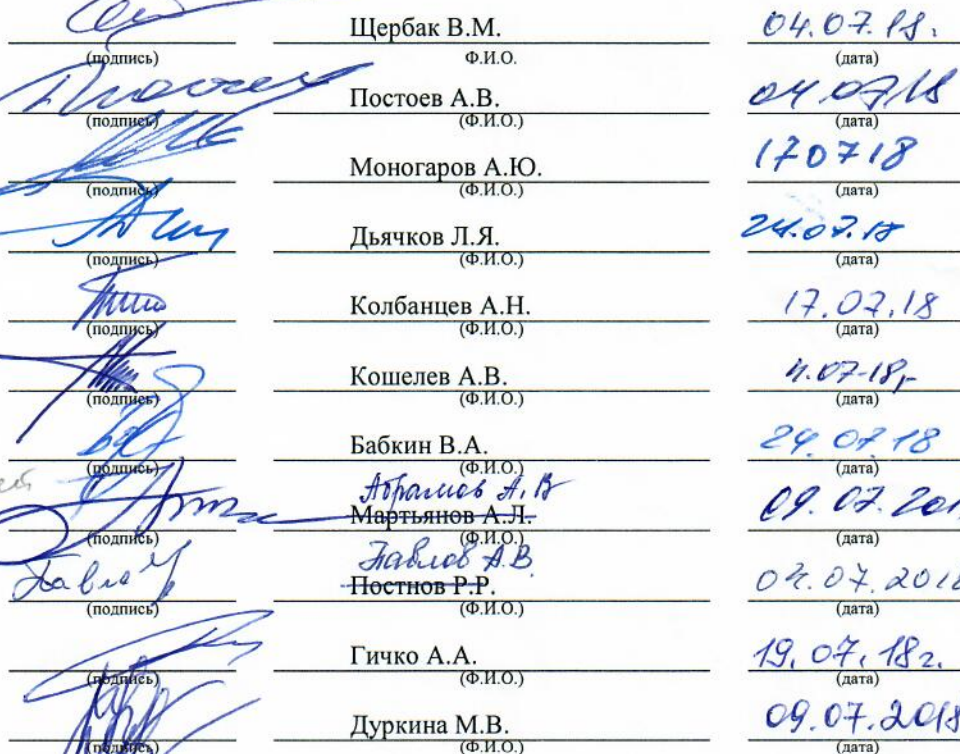 Щербак В.М. 04.07.18г.
(подпись) Ф.И.О. (дата)
Постоев А.В. 04.07.18
(подпись) (Ф.И.О.) (дата)
Моногаров А.Ю. 170718
(подпись) (Ф.И.О.) (дата)
Дьячков Л.Я. 24.07.18
(подпись) (Ф.И.О.) (дата)
Колбанцев А.Н. 17.07.18
(подпись) (Ф.И.О.) (дата)
Кошелев А.В.
(подпись) (Ф.И.О.) (дата)
Бабкин В.А. 24.07.18
(подпись) (Ф.И.О.) (дата)
Абрамов А.В
Мартьянов А.Л. 09.07.201
(подпись) (Ф.И.О.) (дата)
Павлов А.В.
Постнов Р.Р. 04.07.2018
(подпись) (Ф.И.О.) (дата)
Гичко А.А. 19.07.18г.
(подпись) (Ф.И.О.) (дата)
Дуркина М.В. 09.07.2018
(подпись) (Ф.И.О.) (дата)